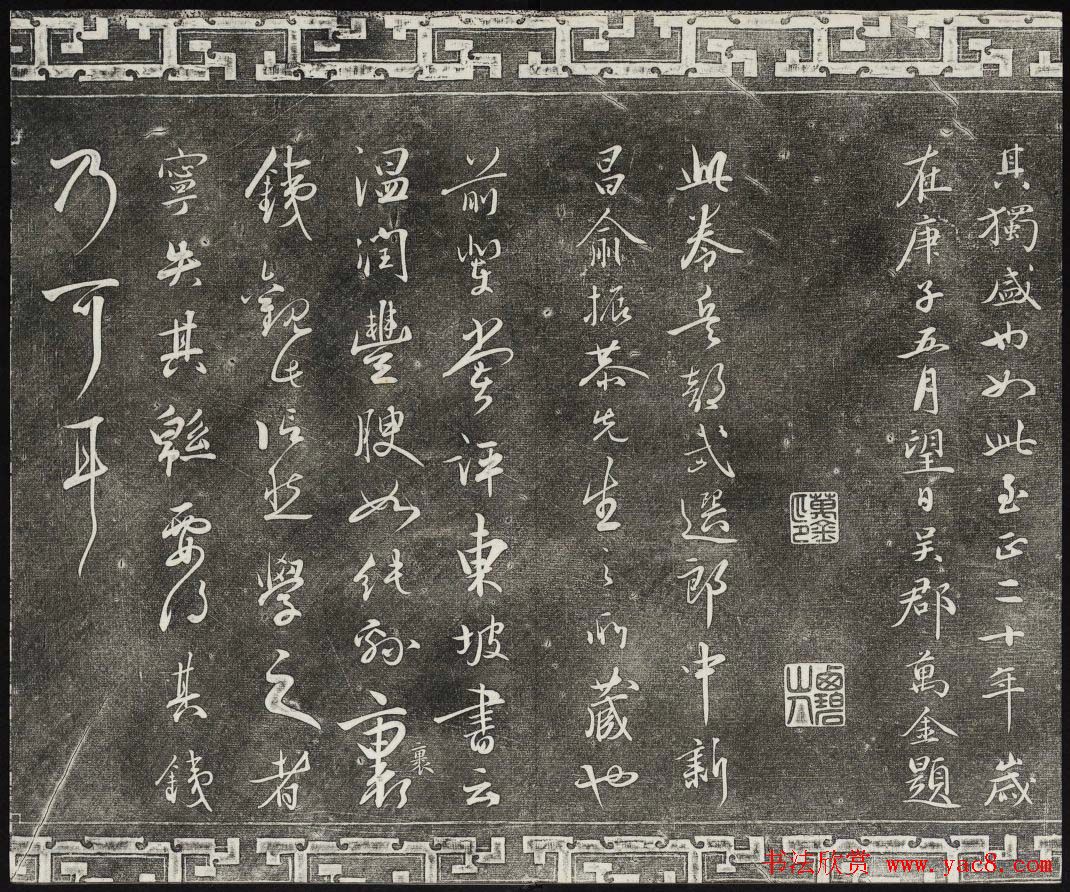 其獨盛也如此至正二十年歲
在庚子五月望日吴郡萬金題
萬金
此卷兵部武選郎中新
昌俞振恭先生之所藏也
前輩嘗評東坡書云
温潤豐腴如純綿裏
裹
鐵觀此信然學之者
寧失其綿要得其鐵
乃可耳
书法欣赏 www.yac8.com